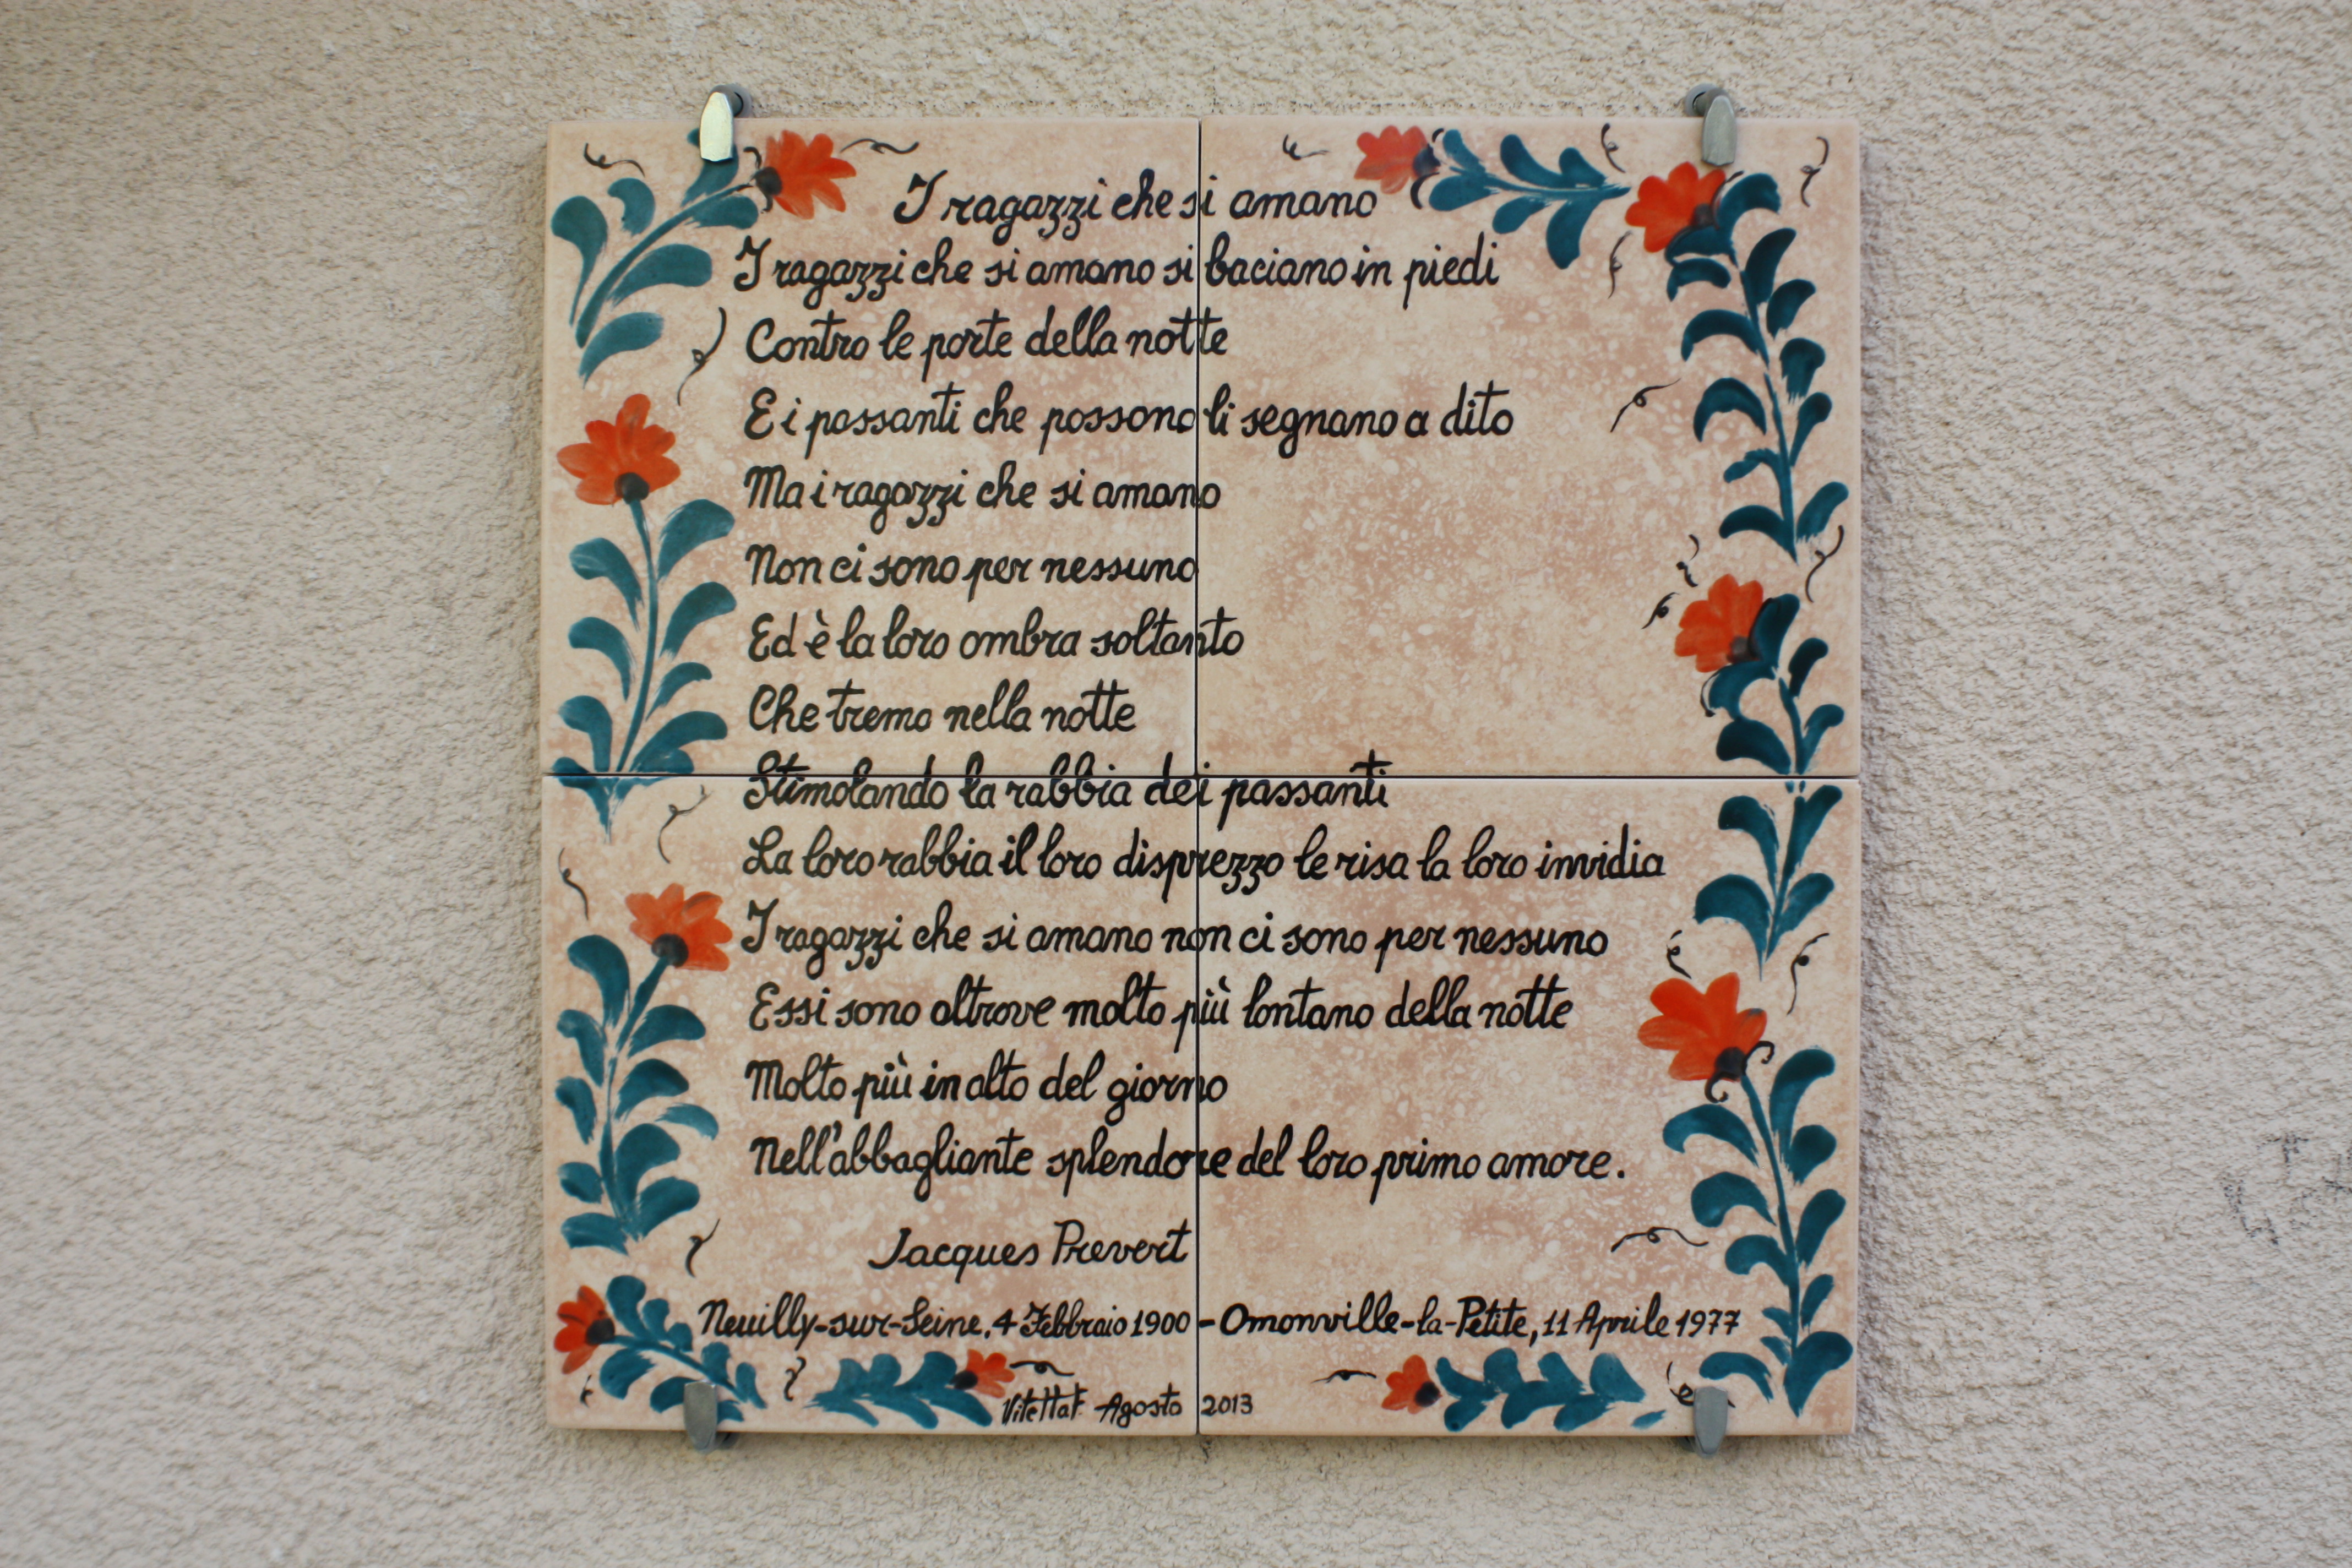 I ragazzi che si amano
I ragazzi che si amano si baciano in piedi
Contro le porte della notte
E i passanti che passono li segnano a dito
Ma i ragazzi che si amano
Non ci sono per nessuno
Ed è la loro ombra soltanto
Che trema nella notte
Stimolando la rabbia dei passanti
La loro rabbia il loro disprezzo le risa la loro invidia
I ragazzi che si amano non ci sono per nessuno
Essi sono altrove molto più lontano della notte
Molto più in alto del giorno
Nell'abbagliante splendore del loro primo amore.
Jacques Prevert
Neuilly-sur-Seine, 4 Febbraio 1900 - Omonville-la-Petite, 11 Aprile 1977
Agosto 2013